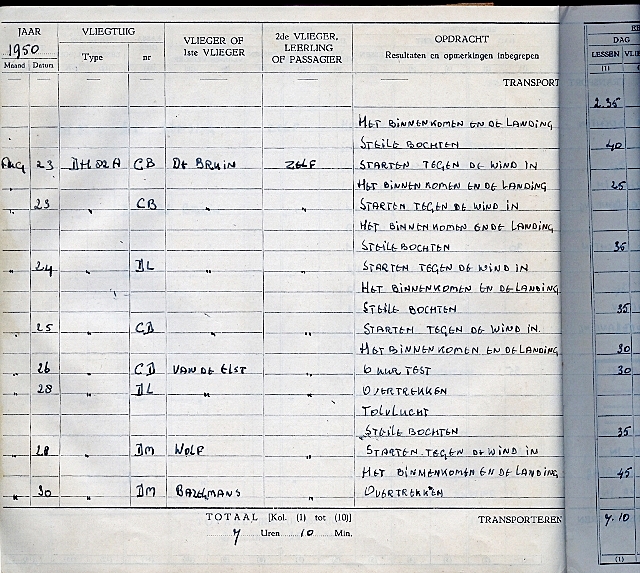 JAAR VLIEGTUIG VLIEGER OF 1STE VLIEGER 2DE VLIEGER, LEERLING OF PASSAGIER OPDRACHT DAG
1950 Type nr Resultaten en opmerkingen inbegrepen LESSEN
Maand Datum (1)
TRANSPORT 2.35
HET BINNENKOMEN EN DE LANDING
STEILE BOCHTEN 40
Aug 23 DH 82 A CB DE BRUIN ZELF STARTEN TEGEN DE WIND IN
HET BINNENKOMEN EN DE LANDING 25
" 23 " CB " " STARTEN TEGEN DE WIND IN
HET BINNENKOMEN EN DE LANDING
STEILE BOCHTEN 35
" 24 " DL " " STARTEN TEGEN DE WIND IN
HET BINNENKOMEN EN DE LANDING
STEILE BOCHTEN 35
" 25 " CD " " STARTEN TEGEN DE WIND IN
HET BINNENKOMEN EN DE LANDING 30
" 26 " CD VAN DE ELST " 6 UUR TEST 30
" 28 " DL " " OVERTREKKEN
TOLVLUCHT
STEILE BOCHTEN 35
" 28 " DM WOLF " STARTEN TEGEN DE WIND IN
HET BINNENKOMEN EN DE LANDING 45
" 30 " DM " OVERTREKKEN
TOTAAL [Kol. (1) tot (10)] TRANSPORTEREN 7.10
7 Uren 10 Min.
(1)